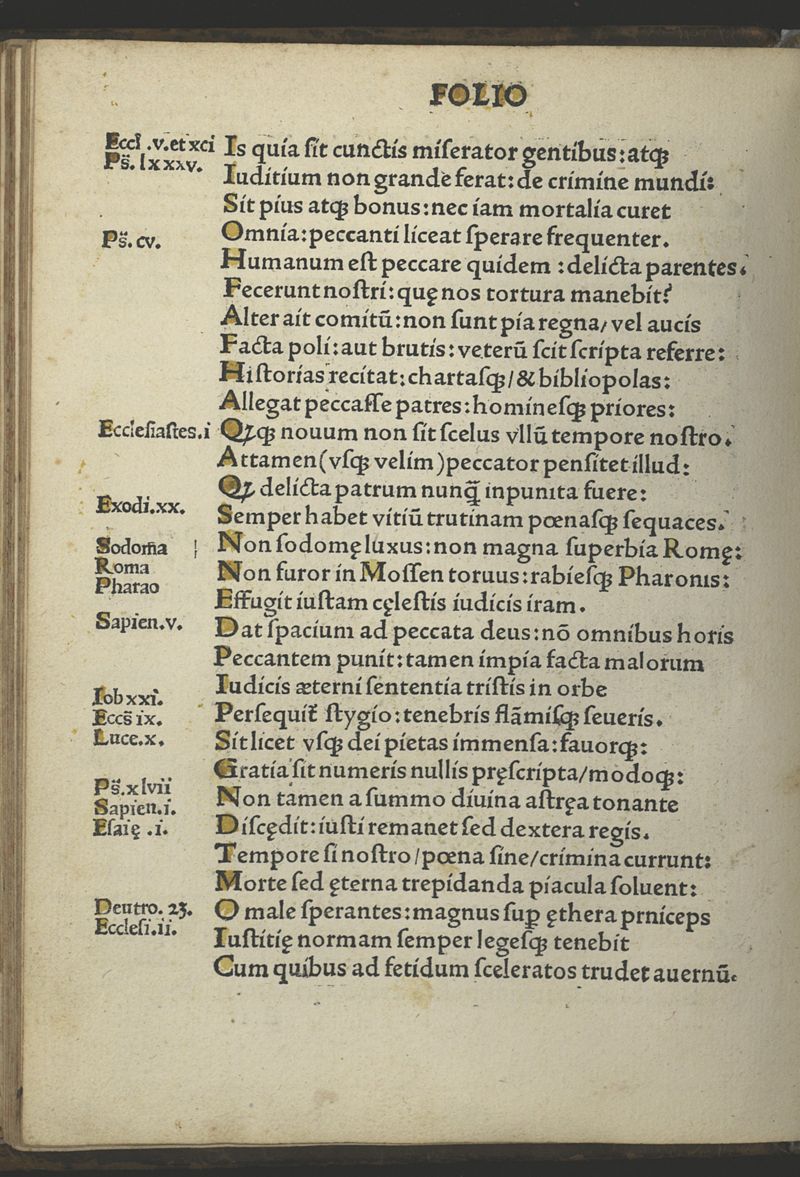 FOLIO
Eccl̄ .v. et xci
Ps̄. lxxxv.
Is quia ſit cunctis miſerator gentibus: atqꝫ
Iuditium non grande ferat: de crimine mundi:
Sit pius atqꝫ bonus: nec iam mortalia curet
Ps̄. cv.
Omnia: peccanti liceat ſperare frequenter.
Humanum eſt peccare quidem : delicta parentes.
Fecerunt noſtri: quę nos tortura manebit?
Alter ait comitū: non ſunt pia regna/ vel aucis
Facta poli: aut brutis: veterū ſcit ſcripta referre:
Hiſtorias recitat: chartaſqꝫ/ & bibliopolas:
Allegat peccaſſe patres: homineſqꝫ priores:
Eccleſiaſtes.i
Qꝙ nouum non ſit ſcelus vllū tempore noſtro.
Attamen (vſqꝫ velim) peccator penſitet illud:
Qꝙ delicta patrum nunq̄ inpunita fuere:
Exodi.xx.
Semper habet vitiū trutinam pœnaſqꝫ ſequaces.
Sodom̄a
Non ſodomę luxus: non magna ſuperbia Romę:
Roma
Pharao
Non furor in Moſſen toruus: rabieſqꝫ Pharonis:
Effugit iuſtam cęleſtis iudicis iram.
Sapien.v.
Dat ſpacium ad peccata deus: nō omnibus horis
Peccantem punit: tamen impia facta malorum
Iudicis æterni ſententia triſtis in orbe
Iob xxi.
Eccs̄ ix.
Perſequit᷑ ſtygio: tenebris flāmiſqꝫ ſeueris.
Luce.x.
Sit licet vſqꝫ dei pietas immenſa: fauorqꝫ:
Gratia ſit numeris nullis pręſcripta/ modoqꝫ:
Ps̄.xlvii
Sapien.i.
Non tamen a ſummo diuina aſtręa tonante
Eſaię .i.
Diſcędit: iuſti remanet ſed dextera regis.
Tempore ſi noſtro/ pœna ſine/ crimina currunt:
Morte ſed ęterna trepidanda piacula ſoluent:
Deutro. 25.
O male ſperantes: magnus ſuꝑ ęthera prniceps
Eccleſi.ii.
Iuſtitię normam ſemper legeſqꝫ tenebit
Cum quibus ad fetidum ſceleratos trudet auernū.